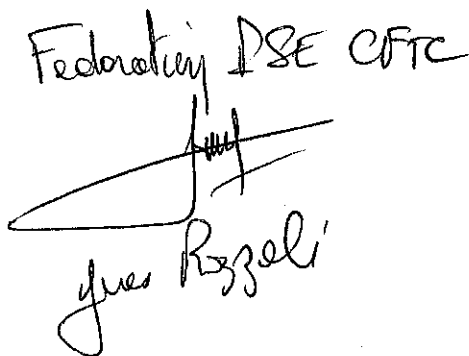 Federation PSE CFTC
Yves Rozzoli